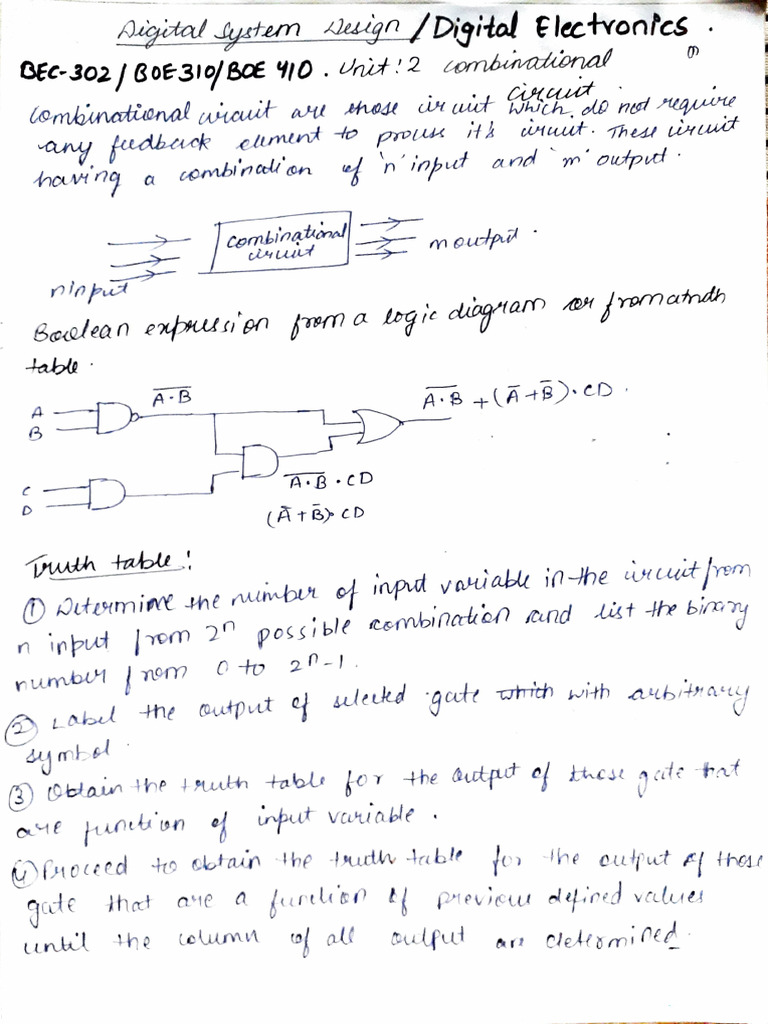 Digital System Design / Digital Electronics .
BEC-302 / BOE310 / BOE 410 . Unit : 2 combinational circuit
(1)
combinational circuit are those circuit which do not require
any feedback element to it's circuit. These circuit
having a combination of 'n' input and 'm' output.
combinational
circuit
m output .
n input
Boolean expression from a logic diagram or from a truth
table .
A
B
\overline{A·B}
\overline{A·B} + (Ā+B̄)·CD .
C
D
\overline{A·B}·CD
(Ā+B̄)·CD
Truth table :
① Determine the number of input variable in the circuit from
n input from 2ⁿ possible combination and list the binary
number from 0 to 2ⁿ-1.
② Label the output of selected gate which with arbitrary
symbol .
③ Obtain the truth table for the output of those gate that
are function of input variable .
④ Proceed to obtain the truth table for the output of those
gate that are a function of previous defined values
until the column of all output are determined.